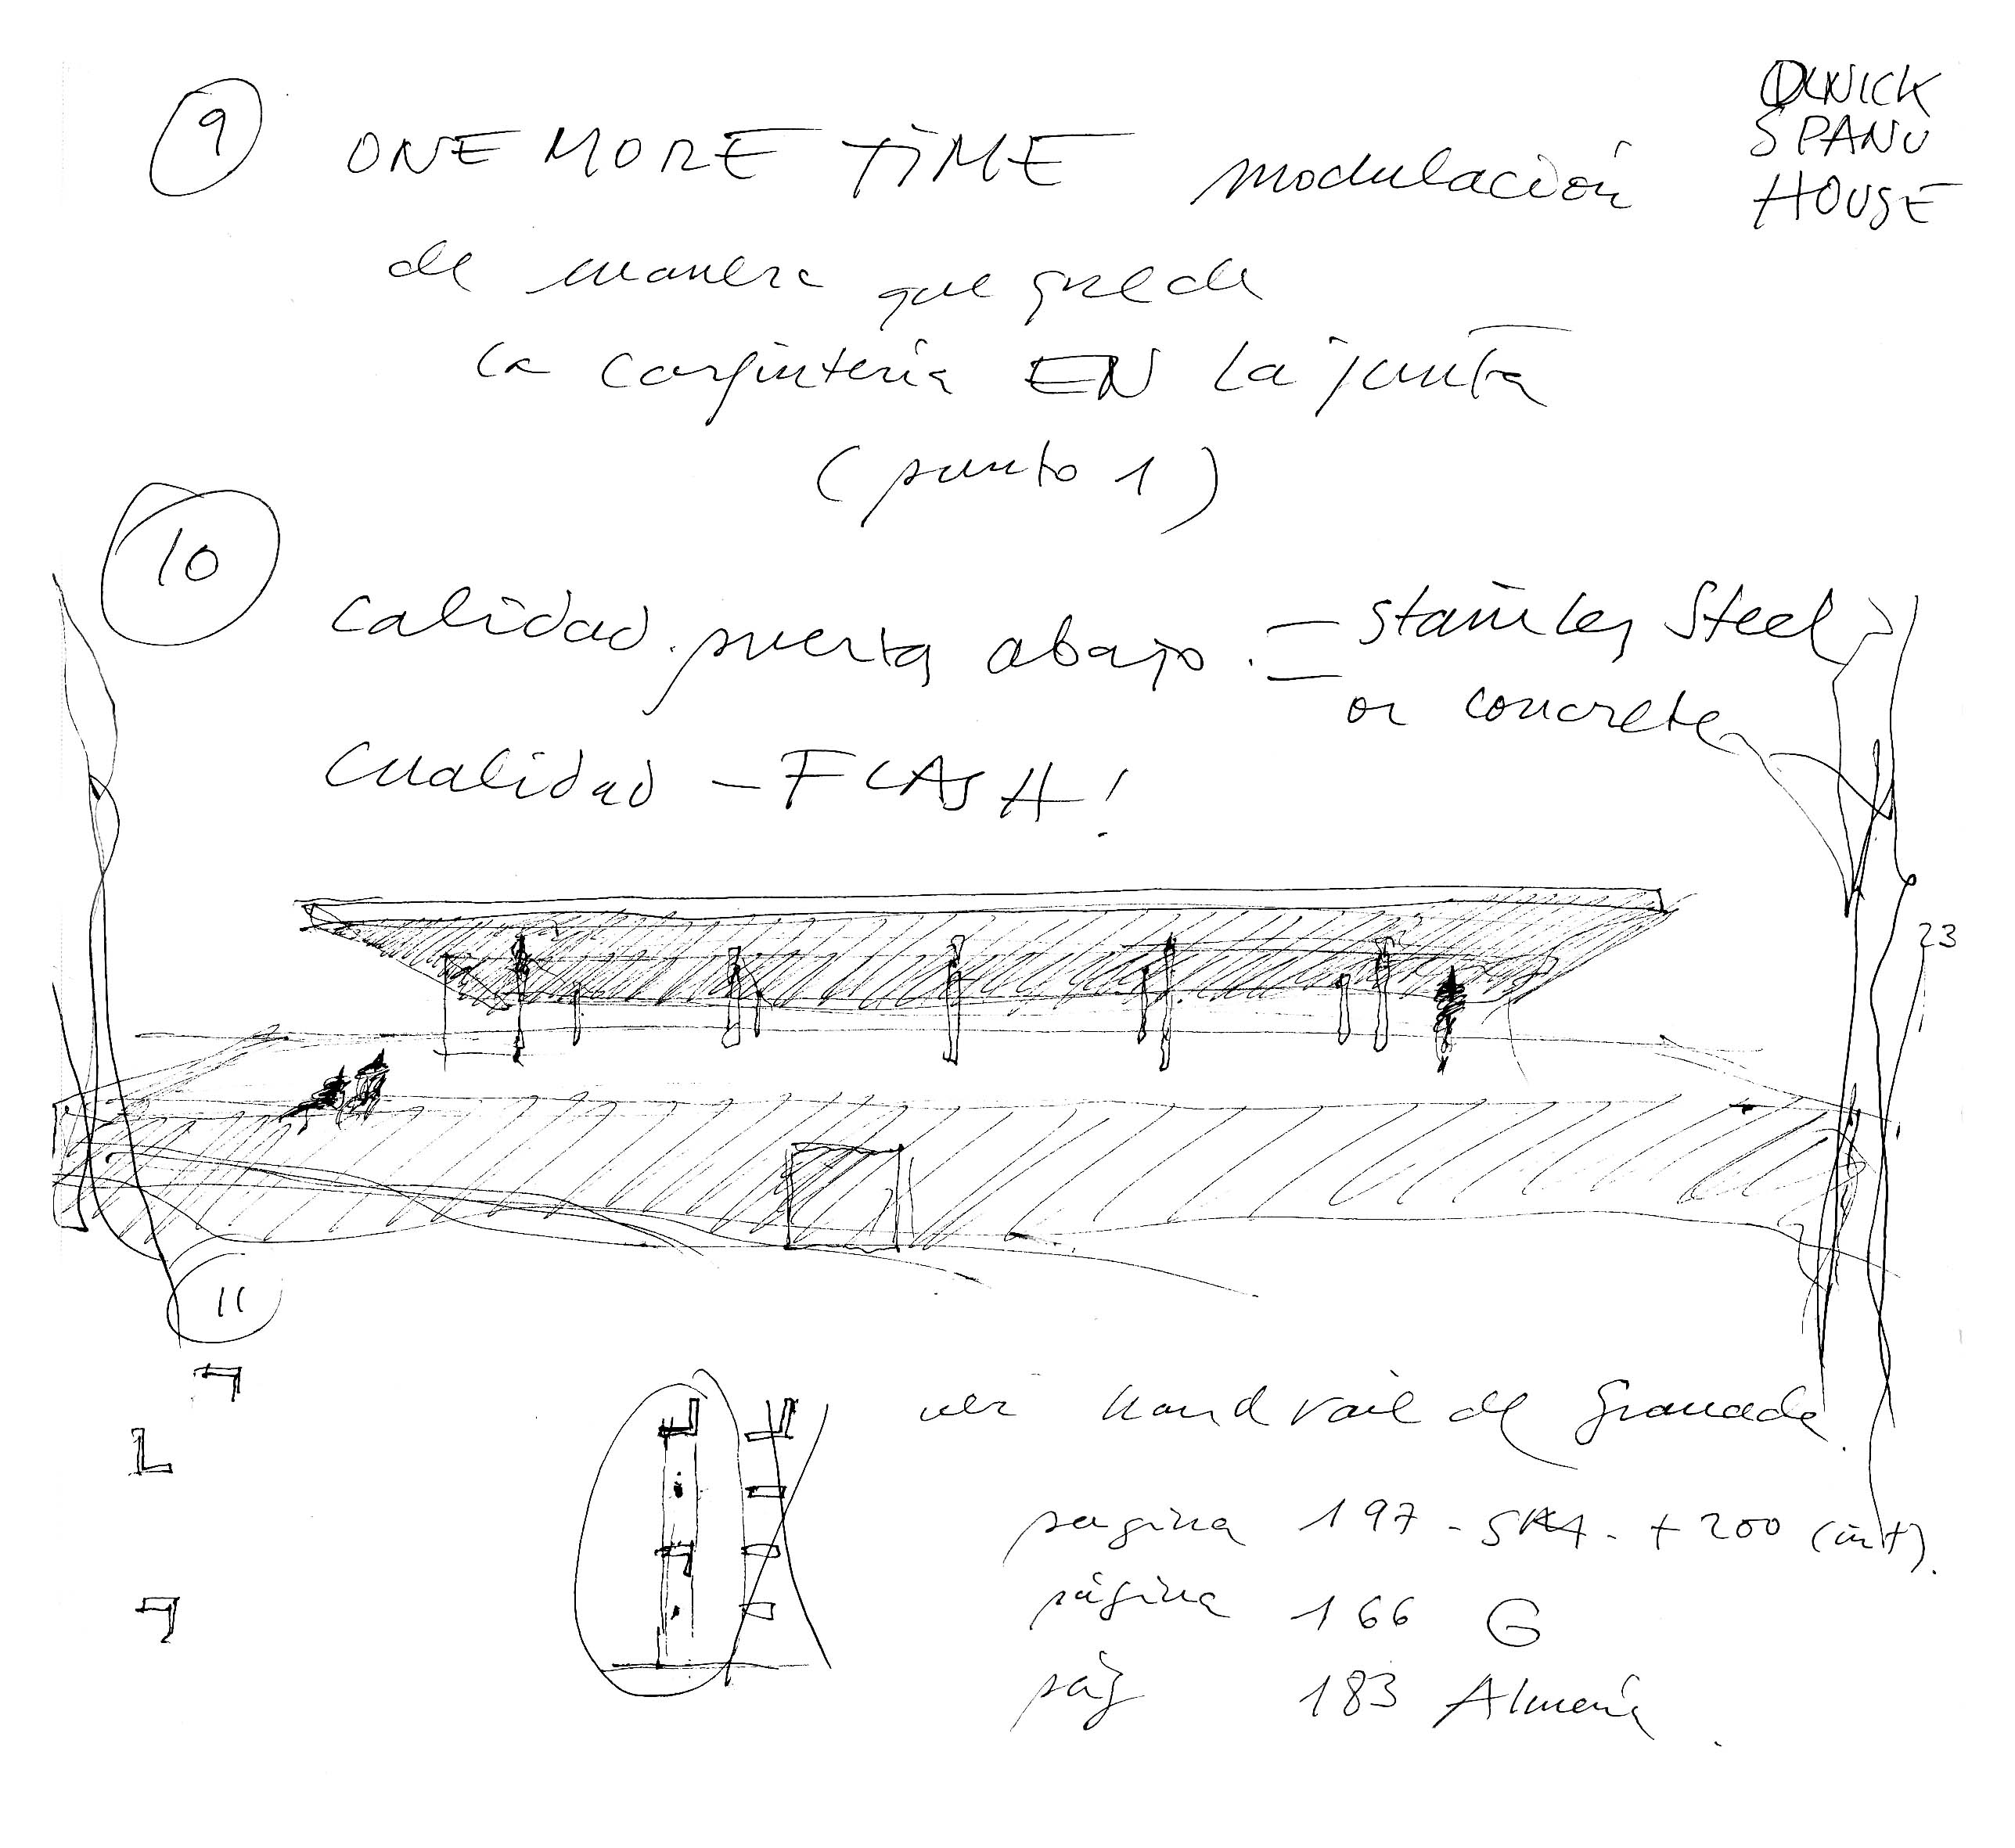 OLNICK
SPANU
HOUSE
9 ONE MORE TIME modulación
de manera que quede
la carpintería EN la junta
(punto 1)
10
calidad puerta abajo: — stainless Steel
or concrete
cualidad — FLASH!
23
11
ver handrail de Granada.
pagina 197 - SMA - + 200 (int).
página 166 G
pág 183 Almería.